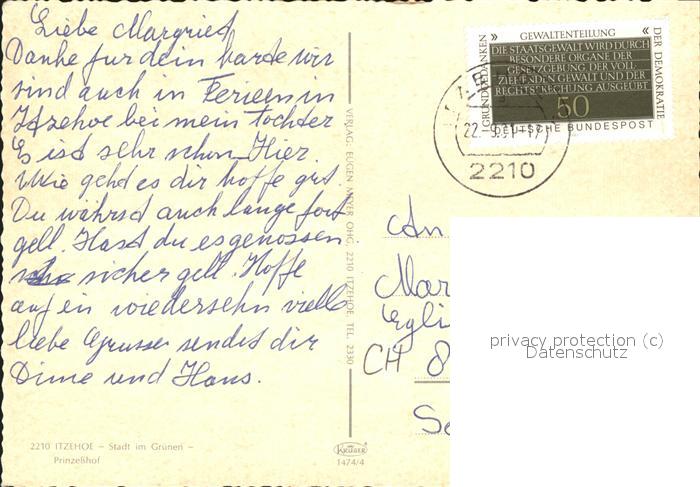 Liebe Margriet
Danke fur dein karde wir
sind auch in Ferieen in
Itzehoe bei mein Tochter
Es ist sehr schon Hier.
Wie gehd es dir hoffe gut.
Du währsd auch lange fort
gell. Hasd du es genossen
sicher gell. Hoffe
auf ein wiedersehn viele
liebe Grusse sendet dir
Dinie und Hans.
2210 ITZEHOE – Stadt im Grünen –
Prinzeßhof
VERLAG: EUGEN MEYER OHG, 2210 ITZEHOE TEL. 2330
KRÜGER
1474/4
» GEWALTENTEILUNG «
DIE STAATSGEWALT WIRD DURCH
BESONDERE ORGANE DER
GESETZGEBUNG, DER VOLL-
ZIEHENDEN GEWALT UND DER
RECHTSPRECHUNG AUSGEÜBT
50
DEUTSCHE BUNDESPOST
GRUNDGEDANKEN
DER DEMOKRATIE
22.9.
2210
An
Mar
Egli
CH 8
Se
privacy protection (c)
Datenschutz